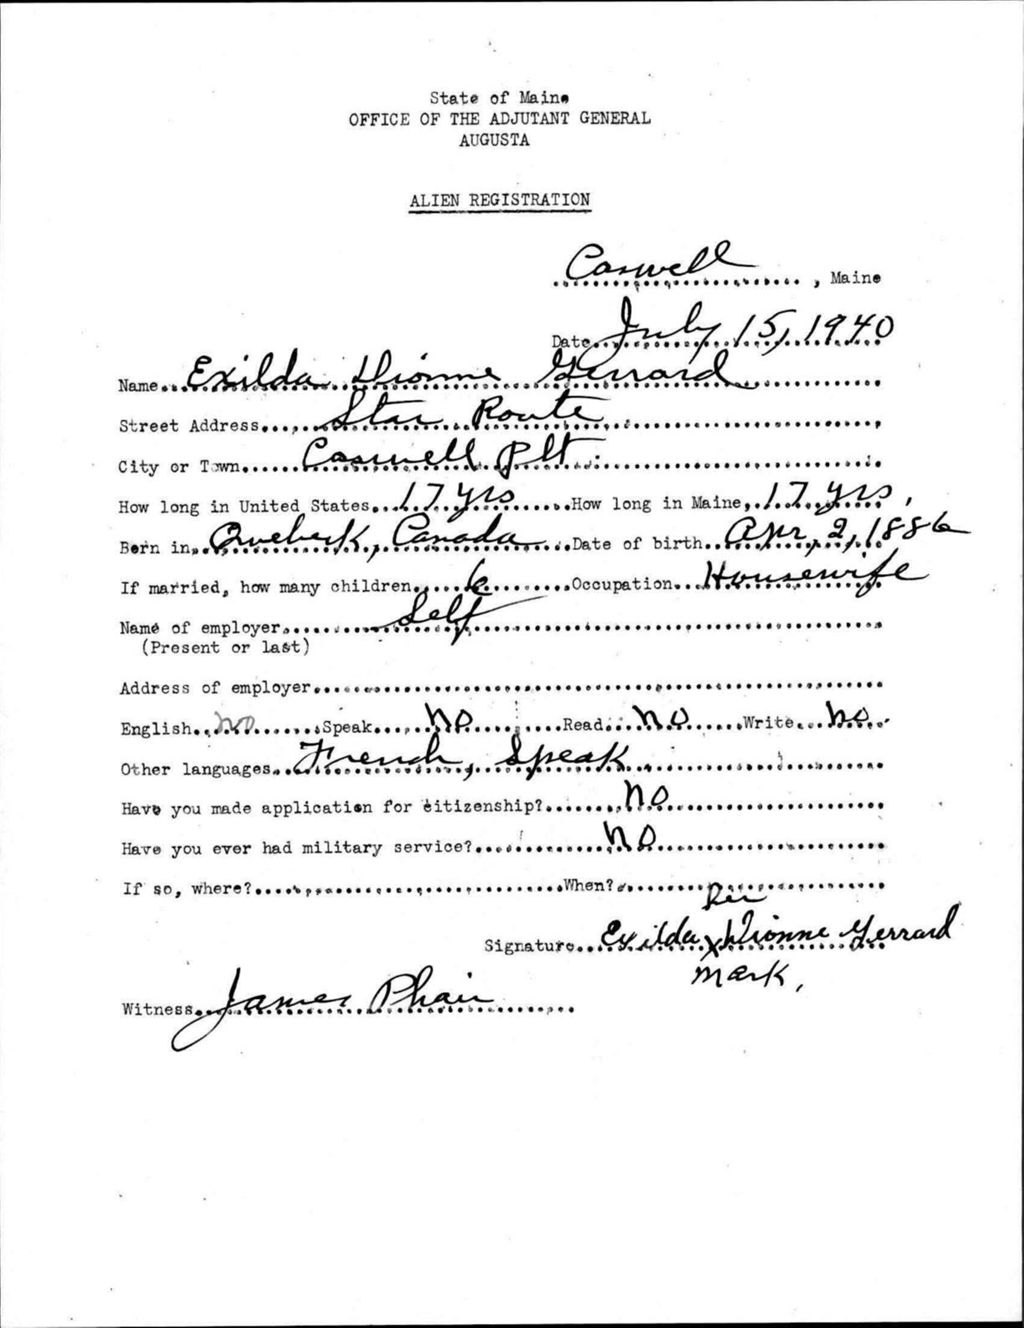 State of Maine
OFFICE OF THE ADJUTANT GENERAL
AUGUSTA
ALIEN REGISTRATION
Caswell, Maine
Date July 15, 1940
Name Exilda Dionne Gerrard
Street Address Star Route
City or Town Caswell Plt.
How long in United States 17 yrs How long in Maine 17 yrs.
Born in Quebeck, Canada Date of birth Apr. 2, 1886
If married, how many children 6 Occupation Housewife
Name of employer Self
(Present or last)
Address of employer
English no Speak No Read No Write No
Other languages French, Speak.
Have you made application for citizenship? No
Have you ever had military service? No
If so, where? When?
Her
Signature Exilda x Dionne Gerrard
mark.
Witness James Phair